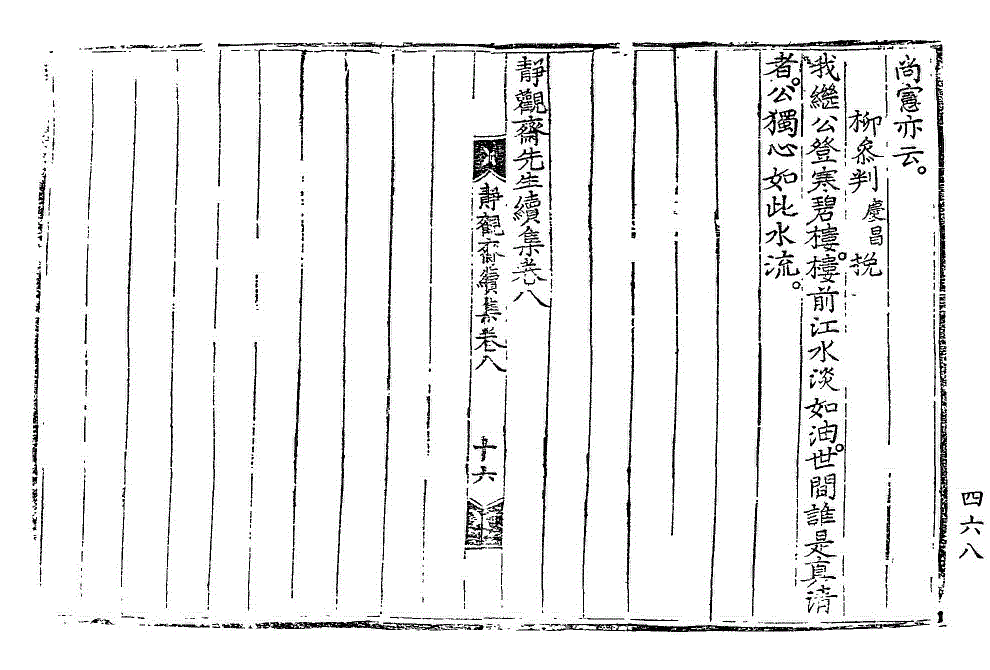 尚憲亦云。
柳參判慶昌挽
我繼公登寒碧樓。樓前江水淡如油。世間誰是真清
者。公獨心如此水流。
靜觀齋先生續集卷八
靜觀齋續集卷八
十六
四六八